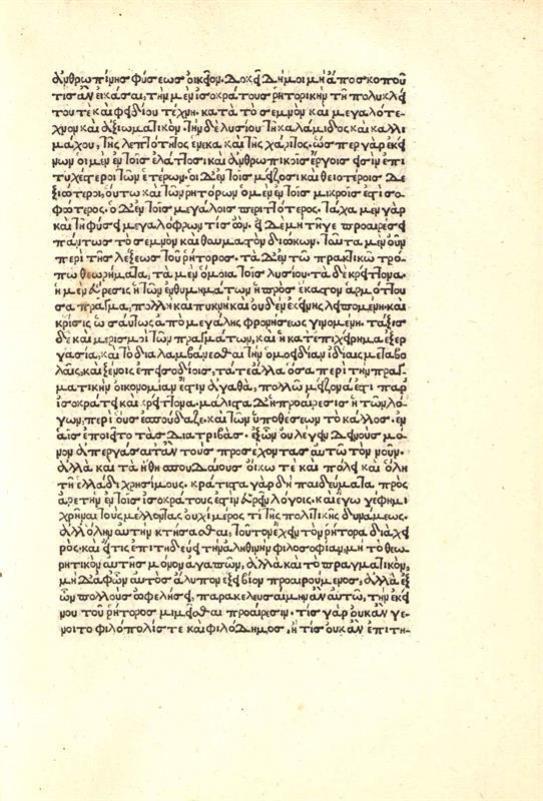 ἀνθρωπίνης φύσεως οἰκεῖον. δοκεῖ δή μοι μὴ ἀπο σκοποῦ
τις ἂν εἰκάσαι, τὴν μὲν ἰσοκράτους ῥητορικὴν τῆ πολυκλεί
του τὲ καὶ φειδίου τέχνη. κατὰ τὸ σεμνὸν καὶ μεγαλότε
χνον καὶ ἀξιωματικὸν. τὴν δὲ λυσίου τῆ καλάμιδος καὶ καλλι
μάχου, τῆς λεπτότητος ἕνεκα καὶ τῆς χάριτος. ὥσπερ γὰρ ἐκεί
νων οἱ μὲν ἐν τοῖς ἐλάττοσι καὶ ἀνθρωπικοῖς ἔργοις εἰσὶν ἐπι
τυχέστεροι τῶν ἑτέρων. οἱ δ' ἐν τοῖς μείζοσι καὶ θειοτέροις δε
ξιώτεροι, οὕτω καὶ τῶν ῥητόρων ὁ μὲν ἐν τοῖς μικροῖς ἐστὶ σο
φώτερος. ὁ δ' ἐν τοῖς μεγάλοις περιττότερος. τάχα μὲν γὰρ
καὶ τῆ φύσει μεγαλόφρων τὶς ὤν. εἰ δὲ μὴ τῆ γε προαιρέσει
πάντως τὸ σεμνὸν καὶ θαυμαστὸν διώκων. ταῦτα μὲν οὖν
περὶ τῆς λέξεως τοῦ ῥήτορος. τὰ δ' ἐν τῶ πρακτικῶ τρό-
πω θεωρήματα, τὰ μὲν ὅμοια τοῖς λυσίου. τὰ δὲ κρείττονα.
ἡ μὲν εὕρεσις ἡ τῶν ἐνθυμημάτων ἡ πρὸς ἕκαστον ἁρμόττου
σα πρᾶγμα, πολλὴ καὶ πυκνὴ καὶ οὐδὲν ἐκείνης λειπομένη. καὶ
κρίσις ὡσαύτως ἀπὸ μεγάλης φρονήσεως γινομένη. τάξις
δὲ καὶ μερισμοὶ τῶν πραγμάτων, καὶ ἡ κατ' ἐπιχείρημα ἐξερ
γασία, καὶ τὸ διαλαμβάνεσθαι τὴν ὁμοείδιαν ἰδίαις μεταβο
λαῖς, καὶ ξένοις ἐπεισοδίοις, τά τε ἄλλα ὅσα περὶ τὴν πραγ
ματικὴν οἰκονομίαν ἐστὶν ἀγαθὰ, πολλῶ μείζονα ἐστὶ παρ
ἰσοκράτει καὶ κρείττονα. μάλιστα δ' ἡ προαίρεσις ἡ τῶν λό
γων, περὶ οὓς ἐσπούδαζε. καὶ τῶν ὑποθέσεων τὸ κάλλος. ἐν
αἷς ἐποιεῖτο τὰς διατριβάς. ἐξ ὧν οὐ λέγειν δεινοὺς μό
νον ἀπεργάσαιτ' ἂν τοὺς προσέχοντας αὐτῶ τὸν νοῦν.
ἀλλὰ καὶ τὰ ἤθη σπουδαίους οἴκω τε καὶ πόλει καὶ ὅλη
τῆ ἑλλάδι χρησίμους. κράτιστα γὰρ δὴ παιδεύματα πρὸς
ἀρετὴν ἐν τοῖς ἰσοκράτους ἐστὶν εὑρεῖν λόγοις. καὶ ἐγώ γέ φημι
χρῆναι τοὺς μέλλοντας οὐχὶ μέρος τὶ τῆς πολιτικῆς δυνάμεως.
ἀλλ' ὅλην αὐτὴν κτήσασθαι, τοῦτον ἔχειν τὸν ῥήτορα διὰ χει
ρός. καὶ εἴ τις ἐπιτηδεύει τὴν ἀληθινὴν φιλοσοφίαν, μὴ τὸ θεω
ρητικὸν αὐτῆς μόνον ἀγαπῶν, ἀλλὰ καὶ τὸ πραγματικὸν,
μὴ δ' ἀφ' ὧν αὐτὸς ἄλυπον ἕξει βίον προαιρούμενος, ἀλλὰ ἐξ
ὧν πολλοὺς ὠφελήσει, παρακελευσαίμην ἂν αὐτῶ, τὴν ἐκεί
νου τοῦ ῥήτορος μιμεῖσθαι προαίρεσιν. τίς γὰρ οὐκ ἂν γέ
νοιτο φιλόπολίς τε καὶ φιλόδημος, ἢ τίς οὐκ ἂν ἐπιτη-